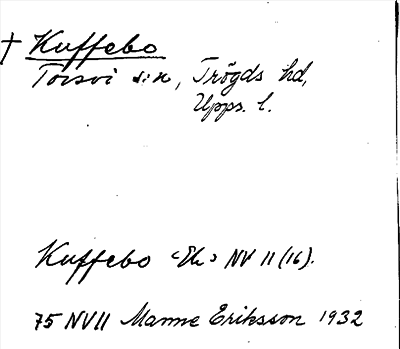 † Kuffebo
Torsvi sn, Trögds hd,
Upps. l.
Kuffebo <Ek> NV 11 (16).
75 NV11 Manne Eriksson 1932